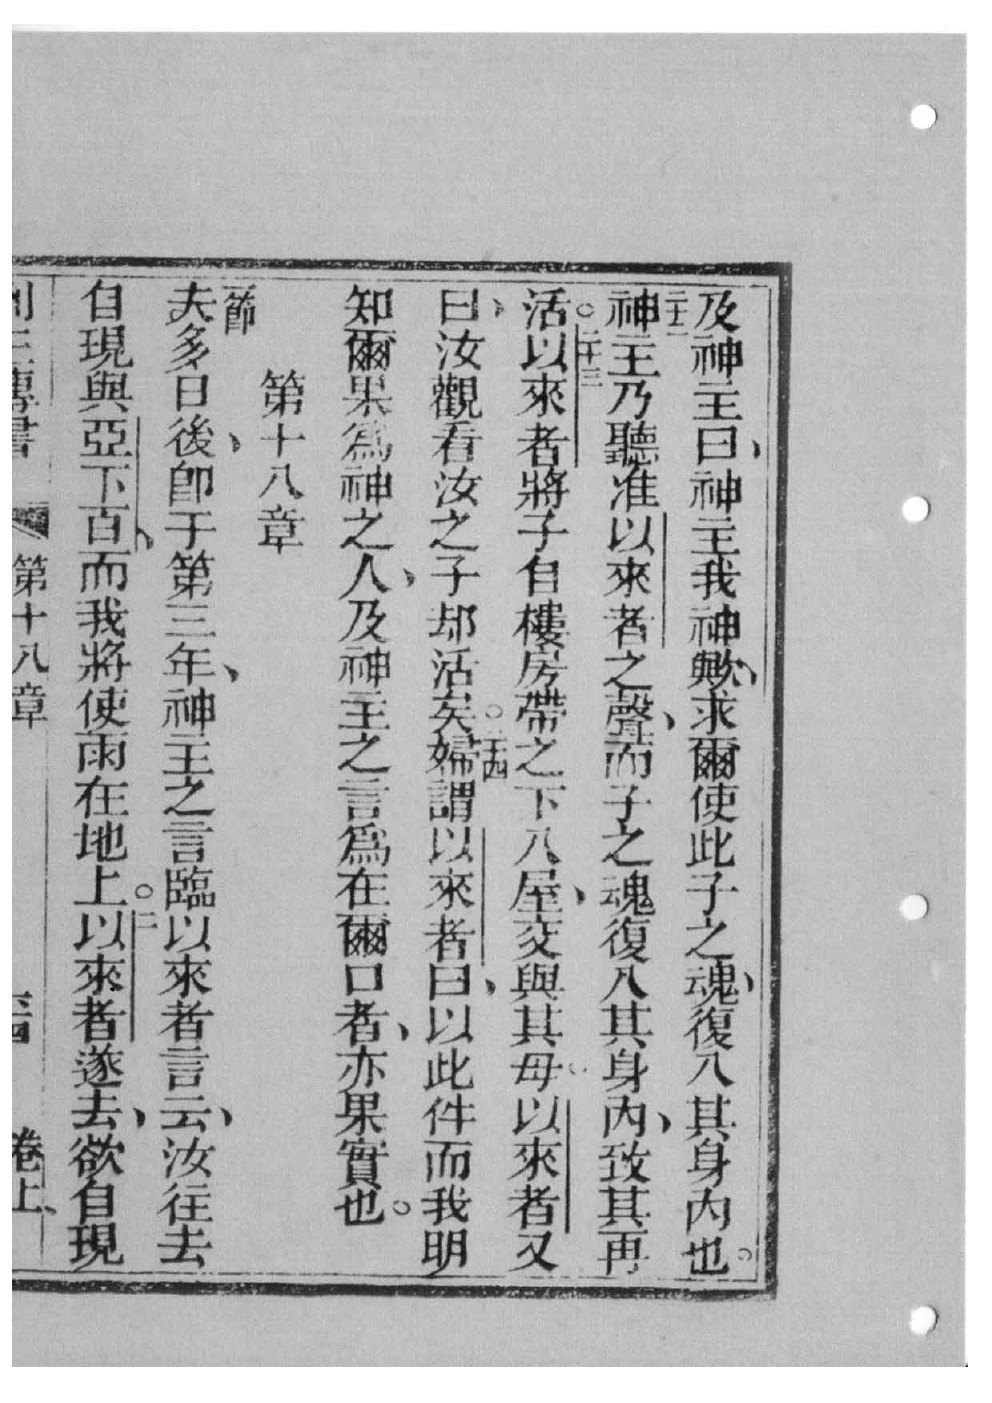 及神主曰、神主我神歟、求爾使此子之魂、復入其身內也。
二十二神主乃聽准以來者之聲、而子之魂復入其身內、致其再
活。二十三以來者將子自樓房帶之下入屋、交與其母。以來者又
曰、汝觀看汝之子却活矣。二十四婦謂以來者曰、以此件而我明
知爾果爲神之人、及神主之言爲在爾口者、亦果實也。
第十八章
一節夫多日後、卽于第三年、神主之言臨以來者言云、汝往去
自現與亞下百、而我將使雨在地上。二以來者遂去、欲自現
列王傳書 第十八章 卷上、